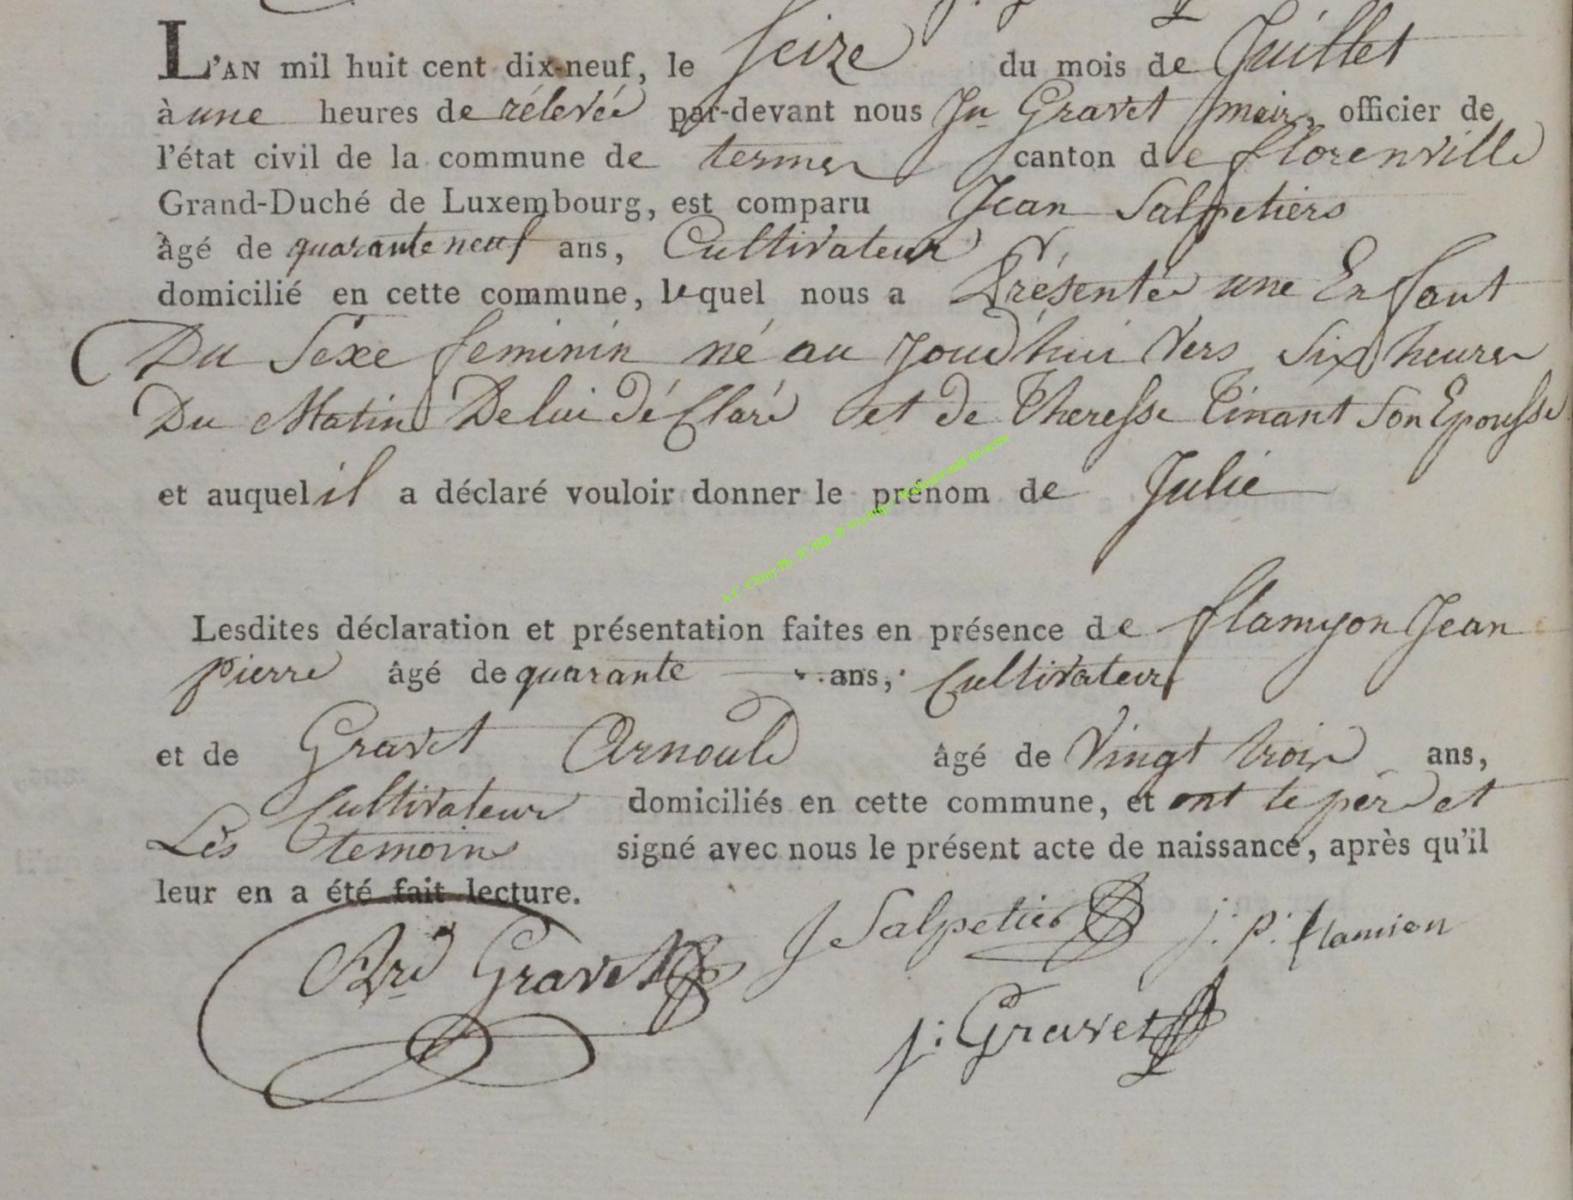 L'AN mil huit cent dix-neuf, le Seize du mois de Juillet
à une heures de rélevée par-devant nous Jn Gravet maire officier de
l'état civil de la commune de termes canton de florenville
Grand-Duché de Luxembourg, est comparu Jean Salpetiers
âgé de quarante neuf ans, Cultivateur
domicilié en cette commune, lequel nous a Présentée une Enfant
Du Sexe feminin né au Joud'hui Vers Six heures
Du Matin De lui déClaré et de Theresse Tinant Son Epousse
et auquel il a déclaré vouloir donner le prénom de Julie
Lesdites déclaration et présentation faites en présence de flamyon Jean
pierre âgé de quarante ans, Cultivateur
et de Gravet Arnould âgé de Vingt trois ans,
Cultivateur domiciliés en cette commune, et ont le pér et
Les temoins signé avec nous le présent acte de naissance, après qu'il
leur en a été fait lecture.
J Salpetier j: p: flamion
Ard Gravet
j: Gravet